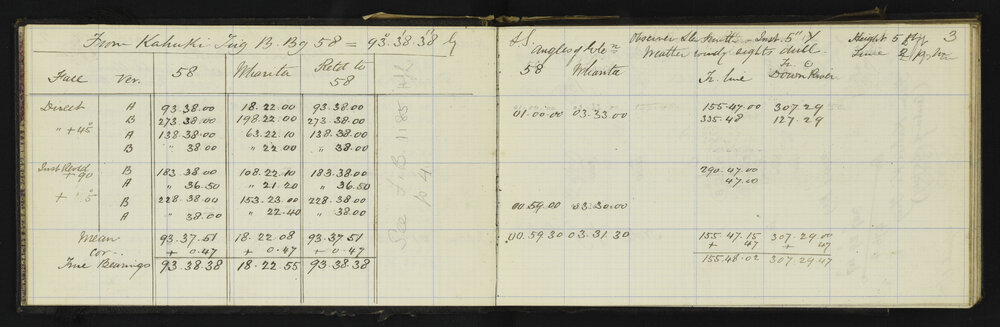 From Kahuki Trig B. Bg 58 = 93°.38'.38"
Face Ver. 58 Wharita Retd to 58
Direct A 93.38.00 18.22.00 93.38.00
B 273.38.00 198.22.00 273.38.00
" +45° A 138.38.00 63.22.10 138.38.00
B " 38.00 " 22.00 " 38.00
Inst Revsd +90 B 183.38.00 108.22.10 183.38.00
A " 36.50 " 21.20 " 36.50
B 228.38.00 153.23.00 228.38.00
A " 38.00 " 22.40 " 38.00
Mean 93.37.51 18.22.08 93.37.51
cor. + 0.47 + 0.47 + 0.47
True Bearings 93.38.38 18.22.55 93.38.38
See F.B. 1185
p 4
Angles of Elen
58 Wharita
01.00.00 03.33.00
00.59.00 03.30.00
00.59.30 03.31.30
Observer Inst. 5"
Weather windy sights dull
Height 5
Time
3
Tr. line Tr. C Down River
155.47.00 307.29
335.48 127.29
290.47.00
47.00
155.47.15 307.29.00
+ 47 + 47
155.48.02 307.29.47